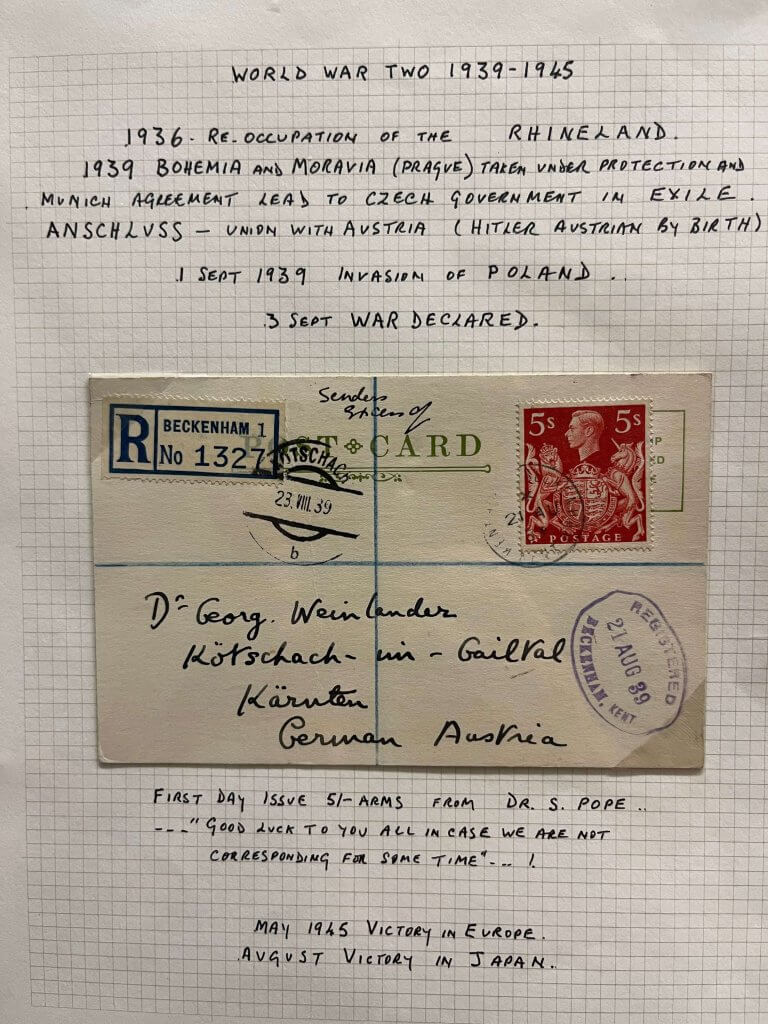 WORLD WAR TWO 1939-1945
1936. RE.OCCUPATION OF THE RHINELAND.
1939 BOHEMIA AND MORAVIA (PRAGUE) TAKEN UNDER PROTECTION AND
MUNICH AGREEMENT LEAD TO CZECH GOVERNMENT IN EXILE.
ANSCHLUSS – UNION WITH AUSTRIA (HITLER AUSTRIAN BY BIRTH)
1 SEPT 1939 INVASION OF POLAND ..
3 SEPT WAR DECLARED.
Senders
of
R BECKENHAM 1
No 1327
POST CARD
KÖTSCHACH
23.VIII.39
b
5s 5s
POSTAGE
21 AU
Dr Georg. Weinlander
Kötschach- im - Gailtal
Kärnten
German Austria
REGISTERED
21 AUG 39
BECKENHAM, KENT
FIRST DAY ISSUE 5/- ARMS FROM DR. S. POPE ..
---"GOOD LUCK TO YOU ALL IN CASE WE ARE NOT
CORRESPONDING FOR SOME TIME"-.. !
MAY 1945 VICTORY IN EUROPE.
AUGUST VICTORY IN JAPAN..